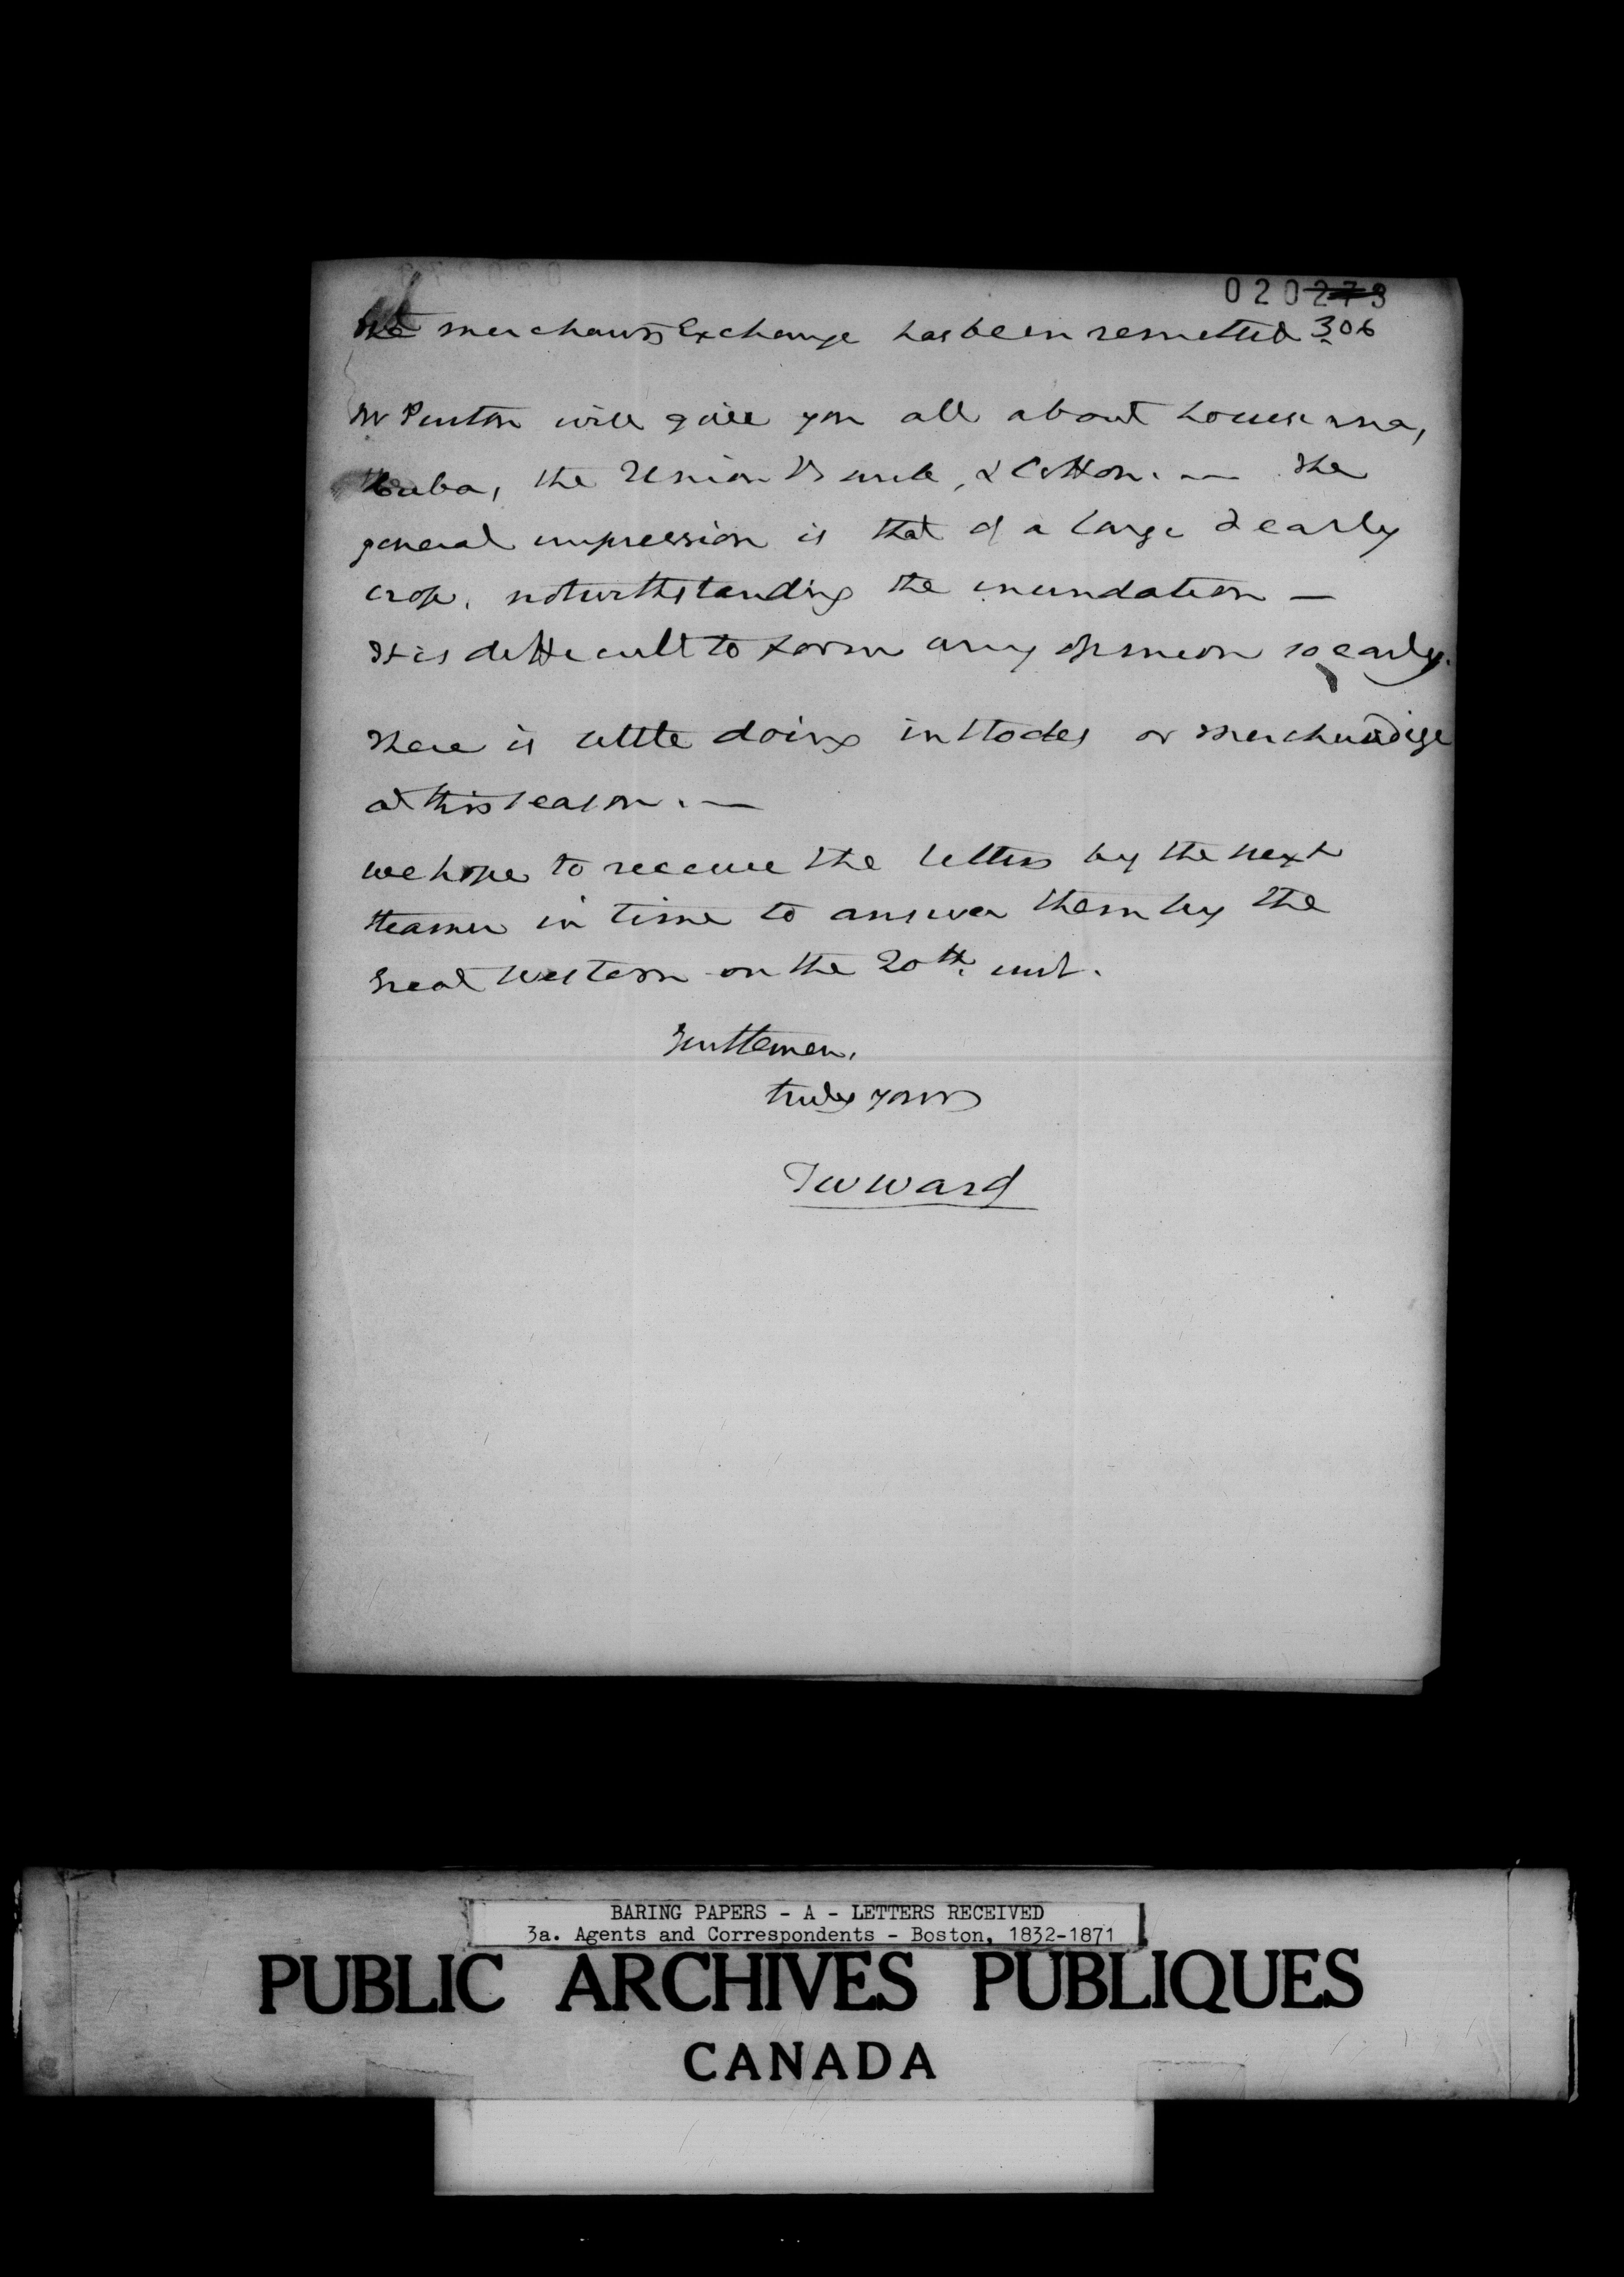 020273
306
The Merchants Exchange has been remitted
Mr Penton will give you all about Louisiana,
Cuba, the Union Bank, & Cotton. — The
general impression is that of a large & early
crop, notwithstanding the inundation —
It is difficult to form any opinion so early.
There is little doing in stocks or merchandise
at this season. —
we hope to receive the letters by the next
steamer in time to answer them by the
Great Western on the 20th. inst.
Gentlemen,
truly yours
T W Ward
BARING PAPERS - A - LETTERS RECEIVED
3a. Agents and Correspondents - Boston, 1832-1871
PUBLIC ARCHIVES PUBLIQUES
CANADA